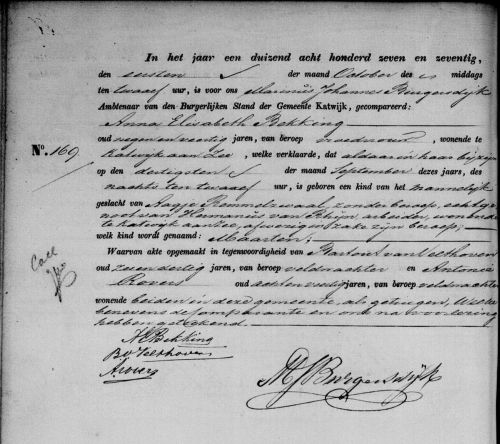 In het jaar een duizend acht honderd zeven en zeventig,
den eersten der maand October des middags
ten twaalf ure, is voor ons Marinus Johannes Burgersdijk
Ambtenaar van den Burgerlijken Stand der Gemeente Katwijk, gecompareerd:
Anna Elisabeth Bekking
oud en veertig jaren, van beroep vroedvrouw, wonende te
No. 169 Katwijk aan Zee, welke verklaarde, dat aldaar in haar bijzijn
op den dertigsten der maand September dezes jaars, des
nachts ten twaalf ure, is geboren een kind van het mannelijk
geslacht van Aagje Remmelzwaal, zonder beroep, echtge-
noot van Hermanus van Rhijn arbeider, wonende
te Katwijk aan Zee, afwezig ter zake zijn beroep;
welk kind wordt genaamd: Maarten;
Waarvan akte opgemaakt in tegenwoordigheid van Bastiaan van Velthoven
oud en dertig jaren, van beroep veldwachter en Antonie
Rovers oud jaren, van beroep veldwachter
wonende beiden in deze gemeente, als getuigen, Welke
benevens de comparante en ons na voorlezing
hebben geteekend.
AE Bekking
B v Velthoven
A Rovers
MJ Burgersdijk